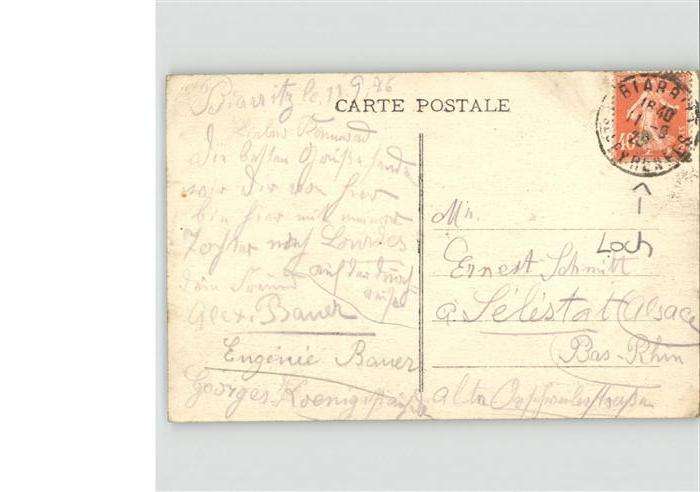 Biarritz le, 11.9.26
CARTE POSTALE
Lieber Kamerad
Die besten Grüße sendet
wir Dir von hier
bin hier mit meiner
Tochter nach Lourdes
auf der Durch-
reise
dein Freund
Alex. Bauer
Eugénie Bauer
Georges Koenig
BIARRITZ
18 40
11 - 9
26
Bses PYRENEES
40
Loch
Mr.
Ernest Schmitt
à Séléstat (Alsace
Bas-Rhin
alte